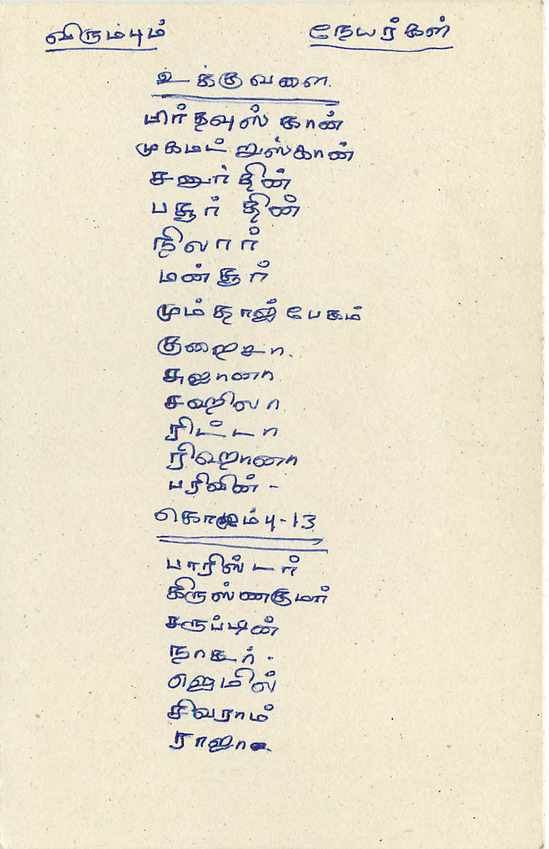 விரும்பும் நேயர்கள்
உக்குவளை
பிர்தவுஸ் கான்
முகமட் றுஸ்கான்
சனூர்தின்
பசூர் தின்
நிலார்
மன்சூர்
மும்தாஜ் பேகம்
குறைசா.
சுஜானா
சஹிலா
ரிட்டா
ரிஹானா
பரிவின் -
கொழும்பு - 13
பாரிஸ்டர்
கிருஸ்ணகுமார்
சருப்டின்
நாகூர் -
ஜெமில்
சிவராம்
ராஜா